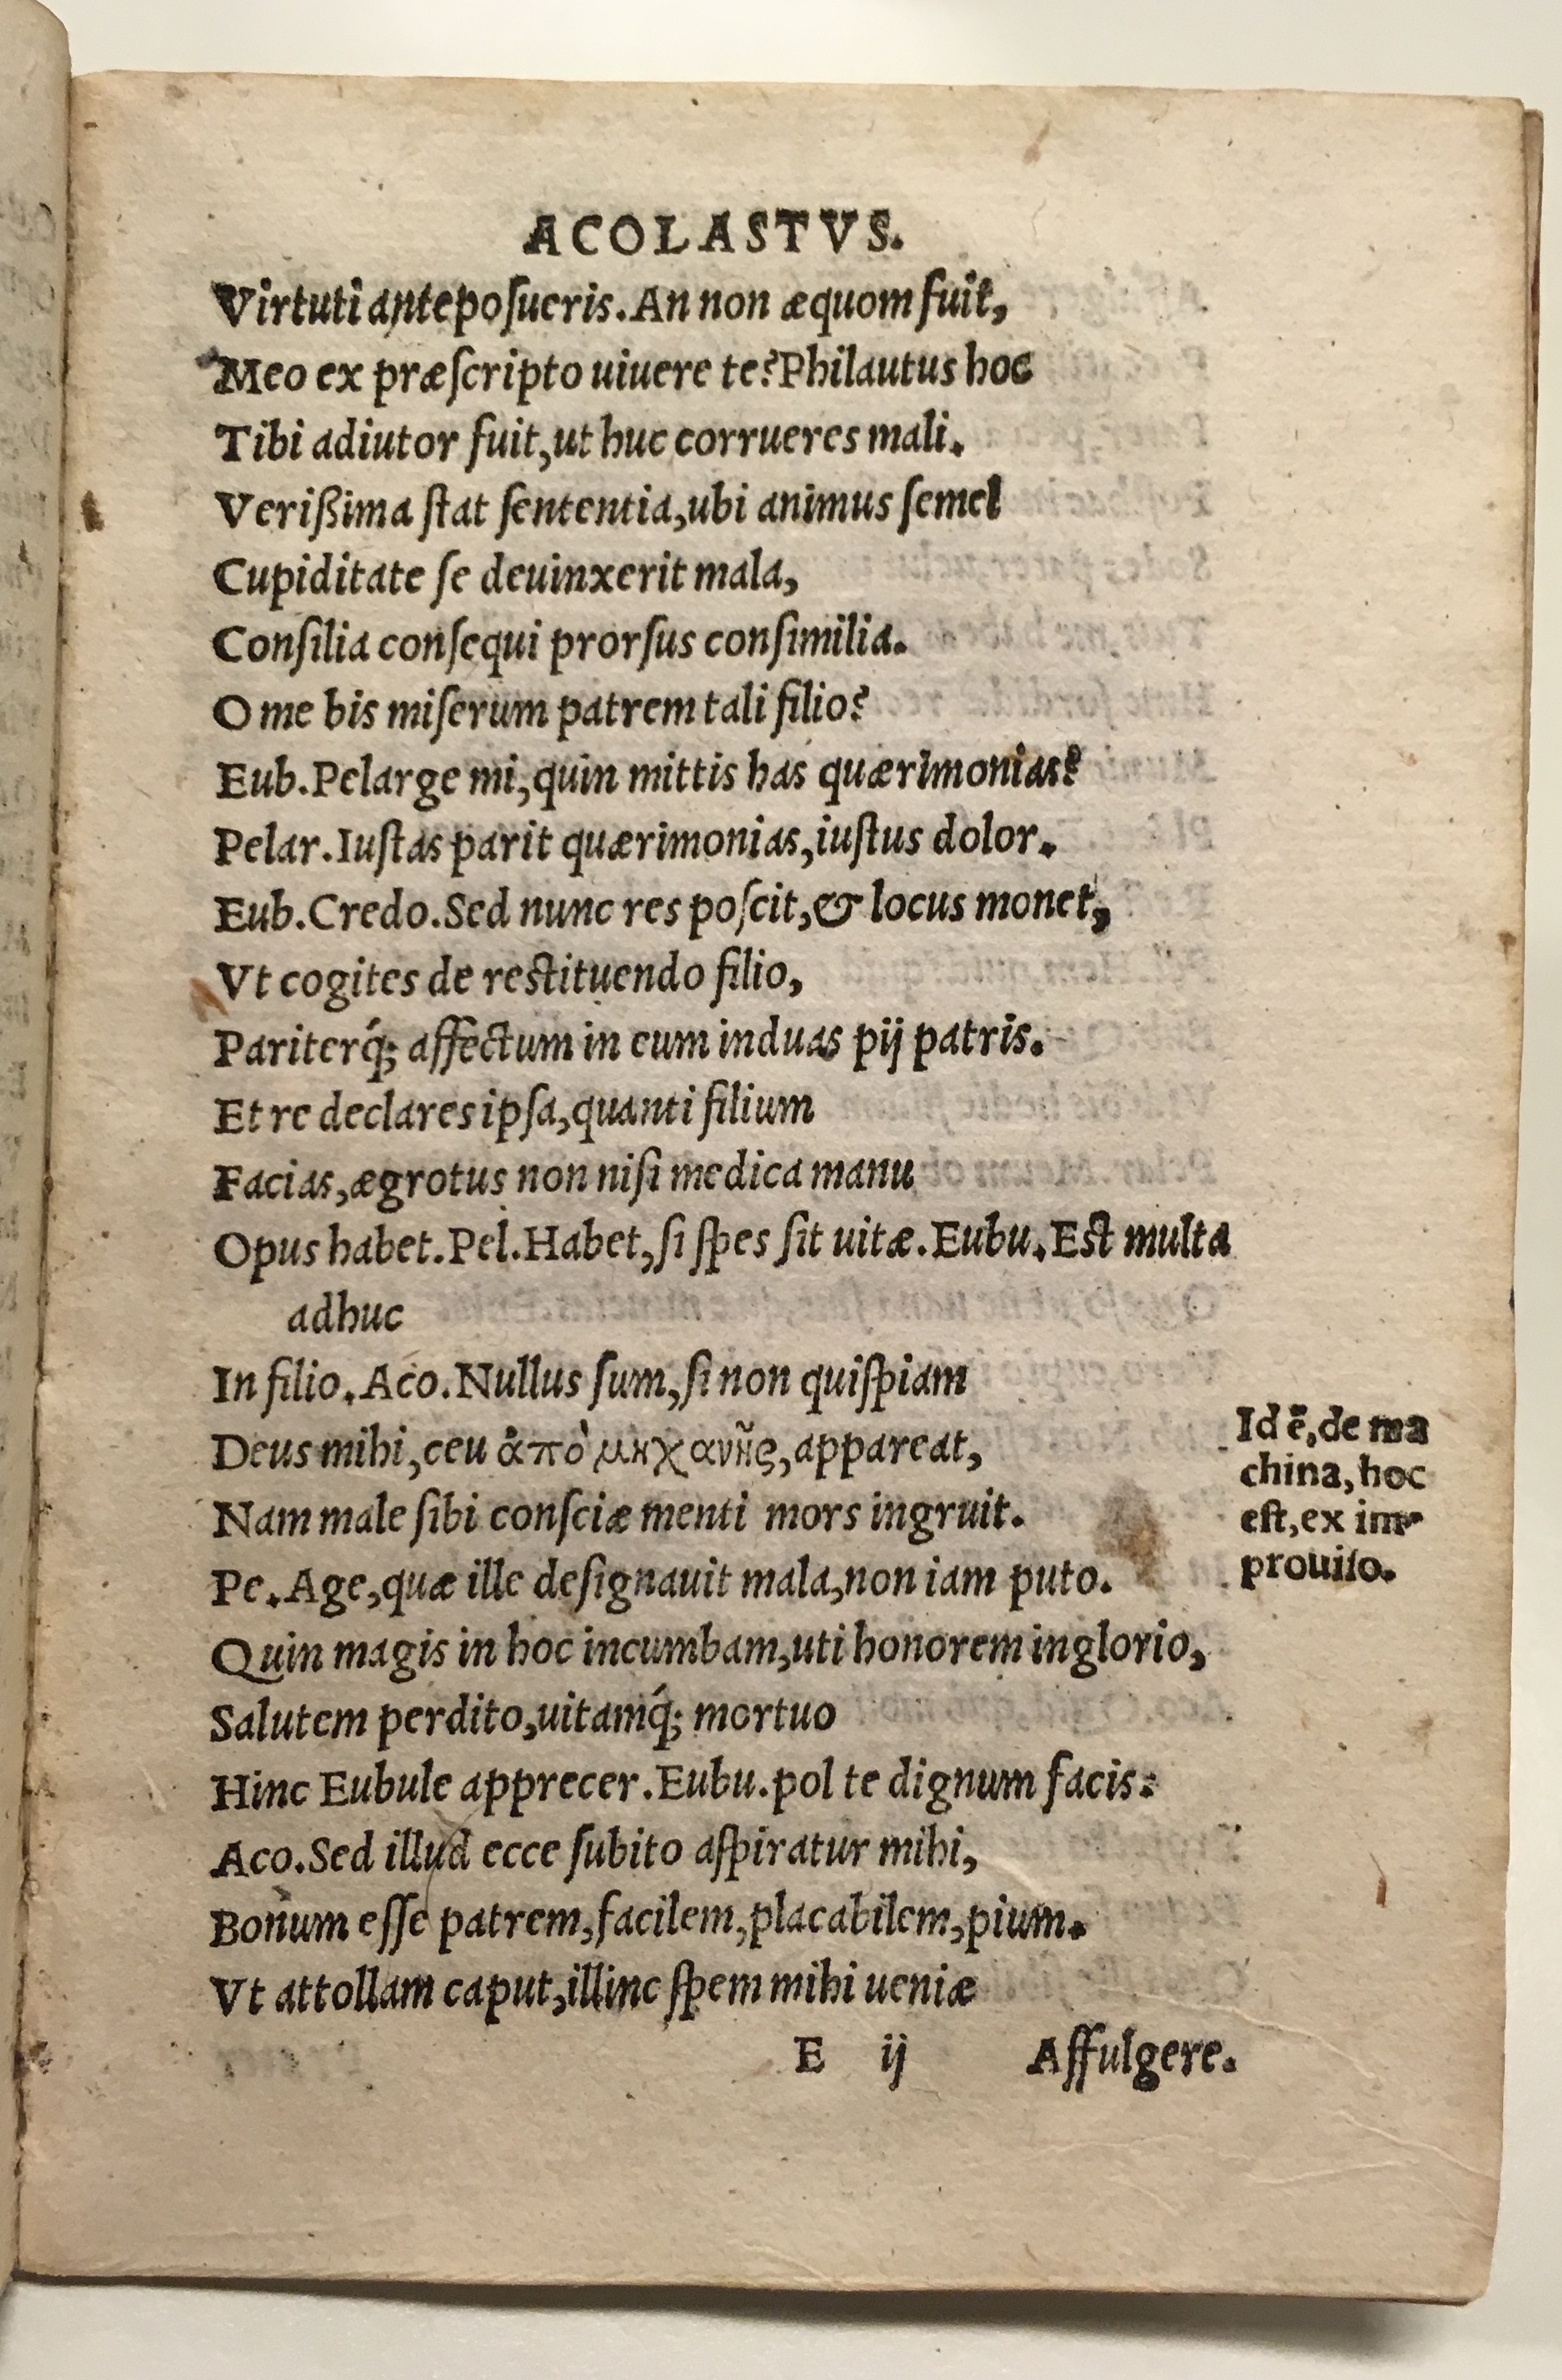 ACOLASTVS.
Virtuti anteposueris. An non æquom fuit,
Meo ex præscripto uiuere te? Philautus hoc
Tibi adiutor fuit, ut huc corrueres mali.
Verißima stat sententia, ubi animus semel
Cupiditate se deuinxerit mala,
Consilia consequi prorsus consimilia.
O me bis miserum patrem tali filio?
Eub. Pelarge mi, quin mittis has quærimonias?
Pelar. Iustas parit quærimonias, iustus dolor.
Eub. Credo. Sed nunc res poscit, & locus monet,
Vt cogites de restituendo filio,
Pariterq́; affectum in eum induas pij patris.
Et re declares ipsa, quanti filium
Facias, ægrotus non nisi medica manu
Opus habet. Pel. Habet, si spes sit uitæ. Eubu. Est multa
adhuc
In filio. Aco. Nullus sum, si non quispiam
Deus mihi, ceu ἀπὸ μηχανῆς, appareat,
Nam male sibi consciæ menti mors ingruit.
Pe. Age, quæ ille designauit mala, non iam puto.
Quin magis in hoc incumbam, uti honorem inglorio,
Salutem perdito, uitamq́; mortuo
Hinc Eubule apprecer. Eubu. pol te dignum facis:
Aco. Sed illud ecce subito aspiratur mihi,
Bonum esse patrem, facilem, placabilem, pium.
Vt attollam caput, illinc spem mihi ueniæ
E ij Affulgere.
Id ē, de ma
china, hoc
est, ex im-
prouiso.